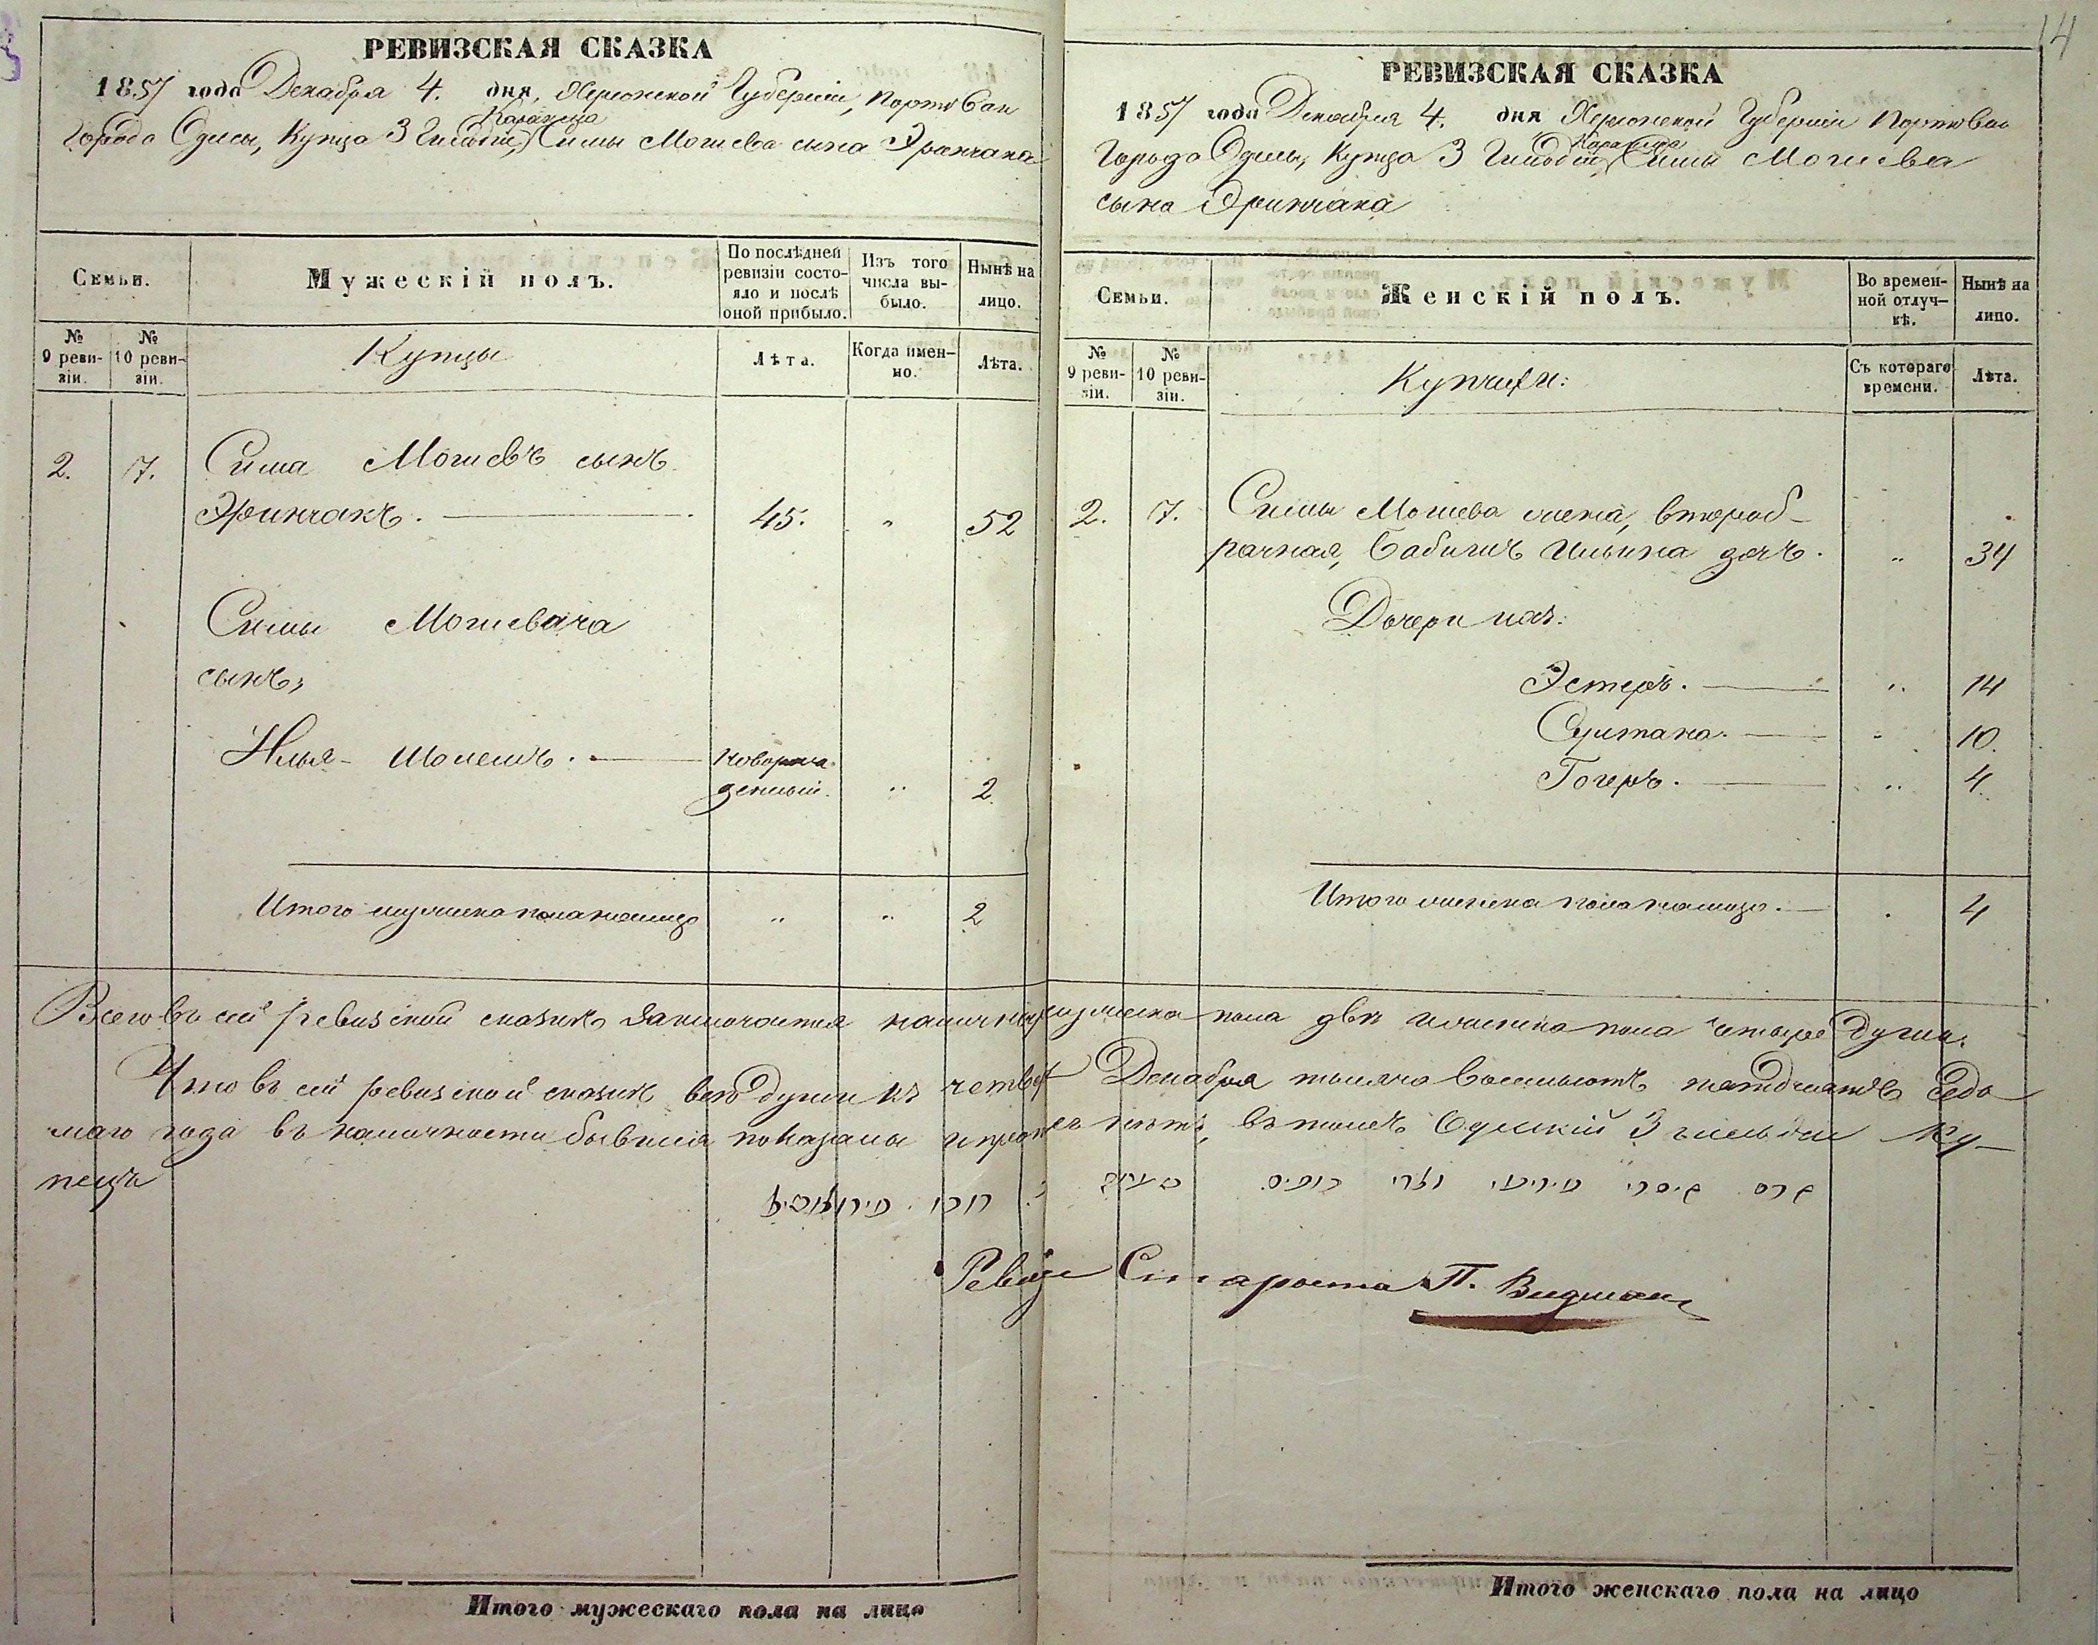 14
РЕВИЗСКАЯ СКАЗКА
1857 года Декабря 4. дня, Херсонской Губерніи, Портоваго
Караима
Города Одессы, Купца 3 Гильдіи, Симы Мошева сына Эринчака
Семьи.
Мужескій полъ.
По послѣдней ревизіи состояло и послѣ оной прибыло.
Изъ того числа выбыло.
Нынѣ на лицо.
№ 9 ревизіи.
№ 10 ревизіи.
Купцы
Лѣта.
Когда именно.
Лѣта.
2. 7. Сима Мошевъ сынъ
Эринчакъ. 45. " 52
Симы Мошевича
сынъ,
Илья - Шолемъ. новорож-
денный. " 2.
Итого мужеска пола налицо " " 2
РЕВИЗСКАЯ СКАЗКА
1857 года Декабря 4. дня Херсонской Губерніи Портоваго
Караима
Города Одессы, Купца 3 Гильдіи, Симы Мошева
сына Эринчака
Семьи.
Женскій полъ.
Во временной отлучкѣ.
Нынѣ на лицо.
№ 9 ревизіи.
№ 10 ревизіи.
Купчихи:
Съ котораго времени.
Лѣта.
2. 7. Симы Мошева жена, второб-
рачная, Бабишъ Ильина дочь. " 34
Дочери ихъ:
Эстеръ. " 14
Султана. " 10.
Гогеръ. " 4.
Итого женска пола налицо. 4
Всего въ сей ревизской сказкѣ заключается наличныхъ мужеска пола двѣ и женска пола четыре души.
Что въ сей ревизской сказкѣ всѣ души къ четвер Декабря тысяча восемьсотъ пятдесятъ седь
маго года въ наличности бывшія показаны и прописныхъ нѣтъ, въ томъ Одесскій 3 гильдіи Ку-
пецъ
Ревизс Староста П. Видман
Итого мужескаго пола на лицо
Итого женскаго пола на лицо